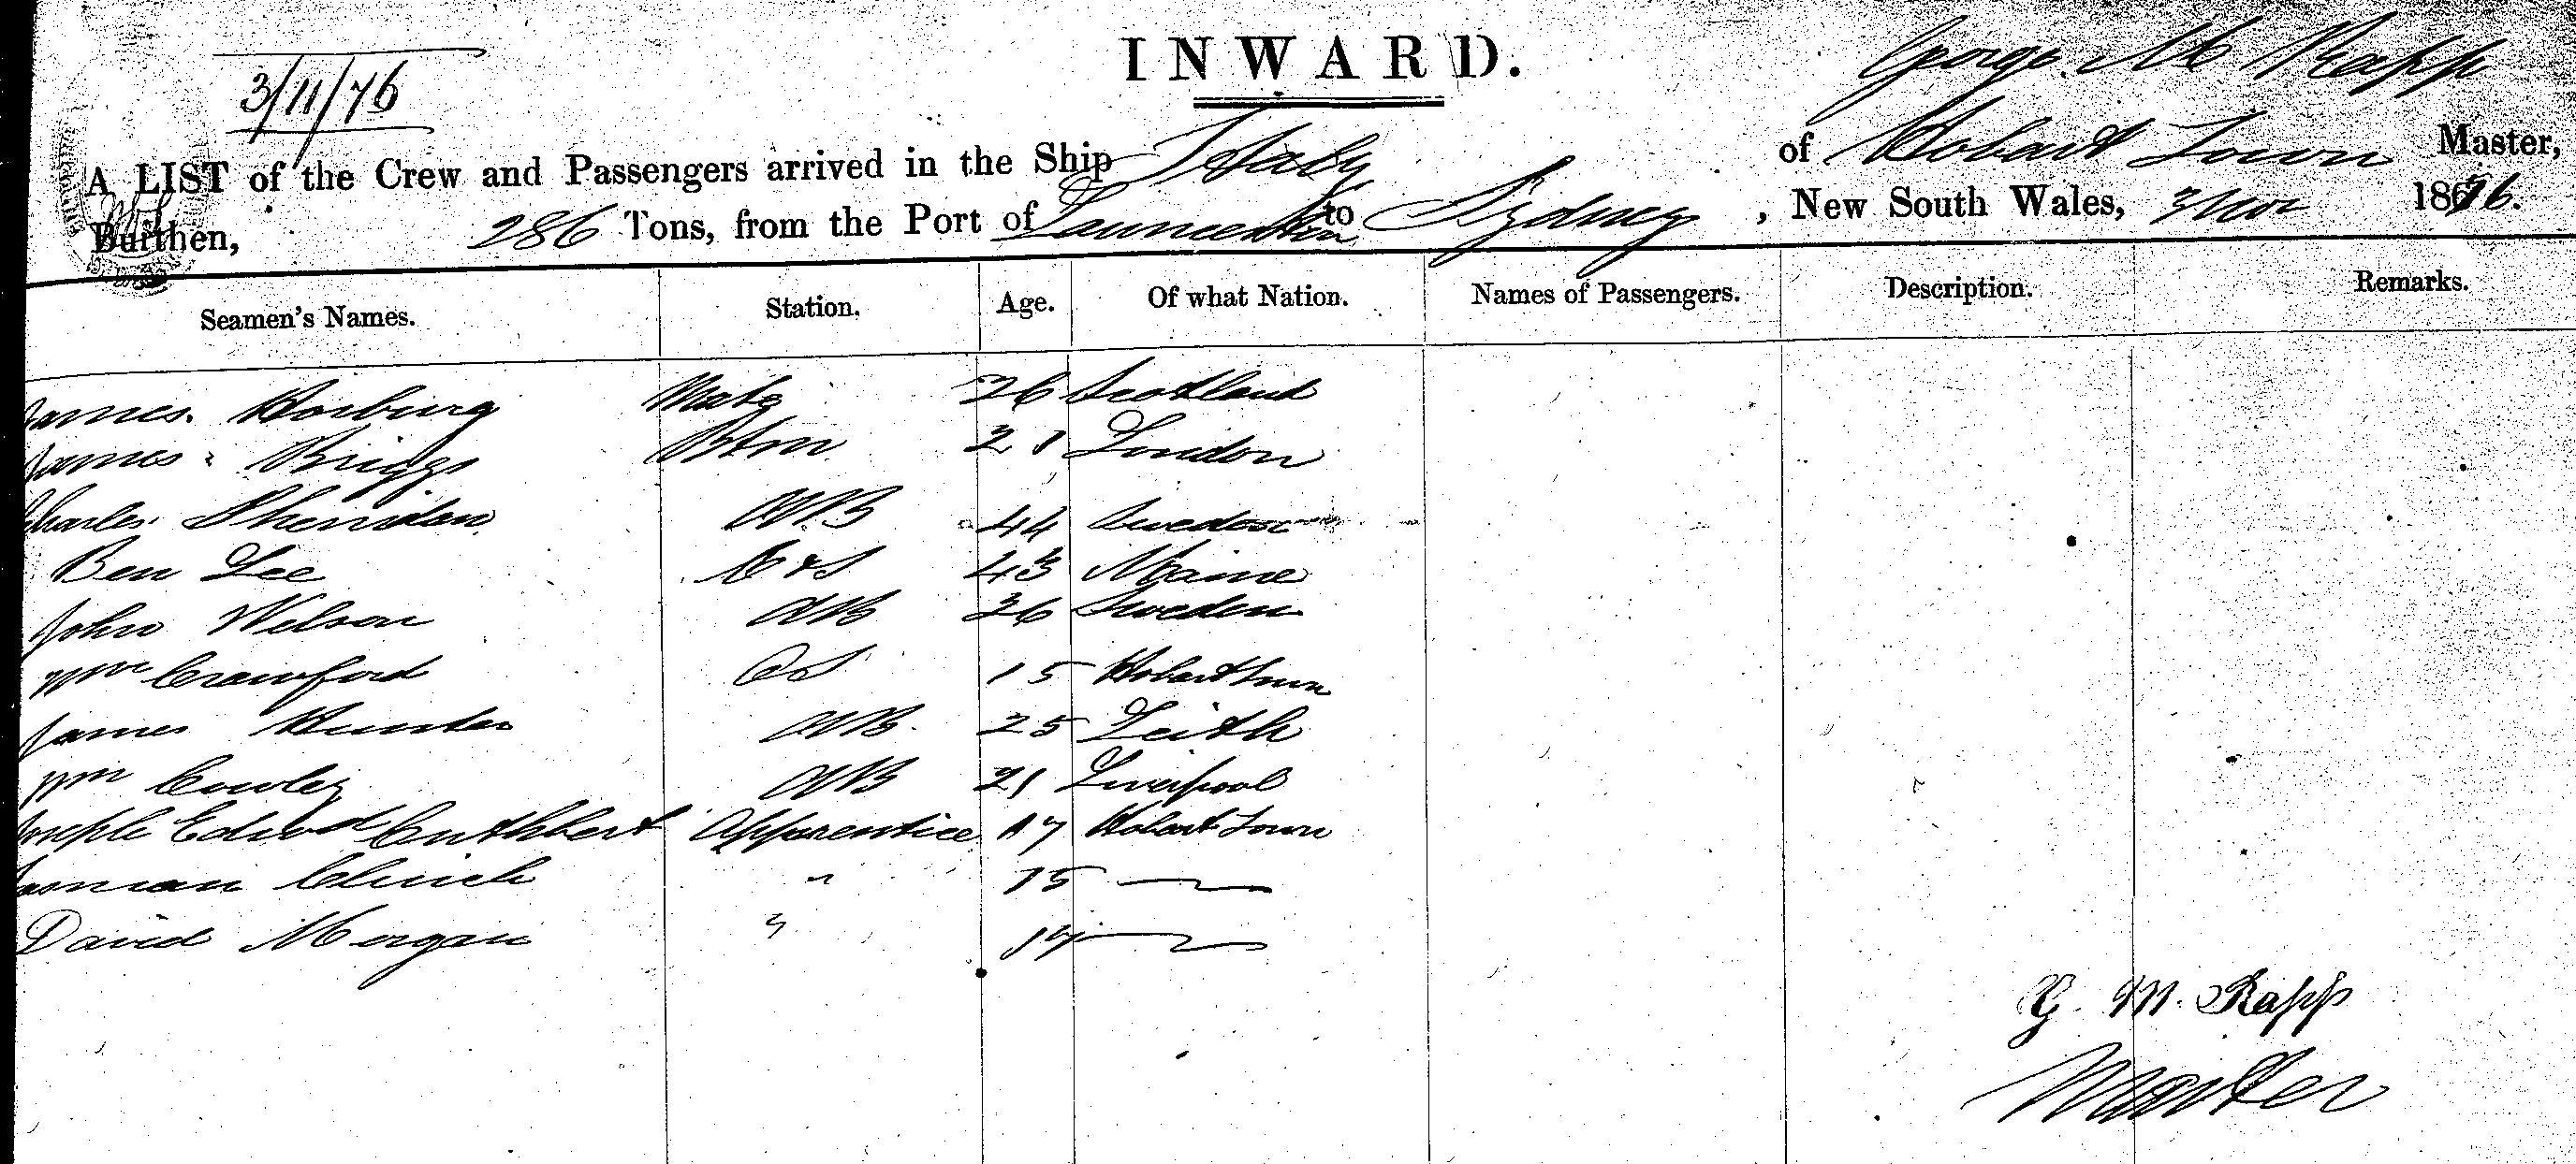 INWARD.
3/11/76
George M Rapp
A LIST of the Crew and Passengers arrived in the Ship Italy of Hobart Town Master,
Burthen, 286 Tons, from the Port of Launceston to Sydney, New South Wales, 3 Nov 1876.
Seamen's Names. Station. Age. Of what Nation. Names of Passengers. Description. Remarks.
James Horburg Mate 26 Scotland
James Briggs Btm 21 London
Charles Sheridan AB 44 Sweden
Ben Lee C & S 43 Maine
John Wilson AB 26 Sweden
Wm Crawford OS 15 Hobart Town
James Hunter AB 25 Leith
Wm Cowley AB 21 Liverpool
Joseph Edwd Cuthbert Apprentice 17 Hobart Town
Tasman Clinch " 15
David Morgan " 17
G. M. Rapp
Master